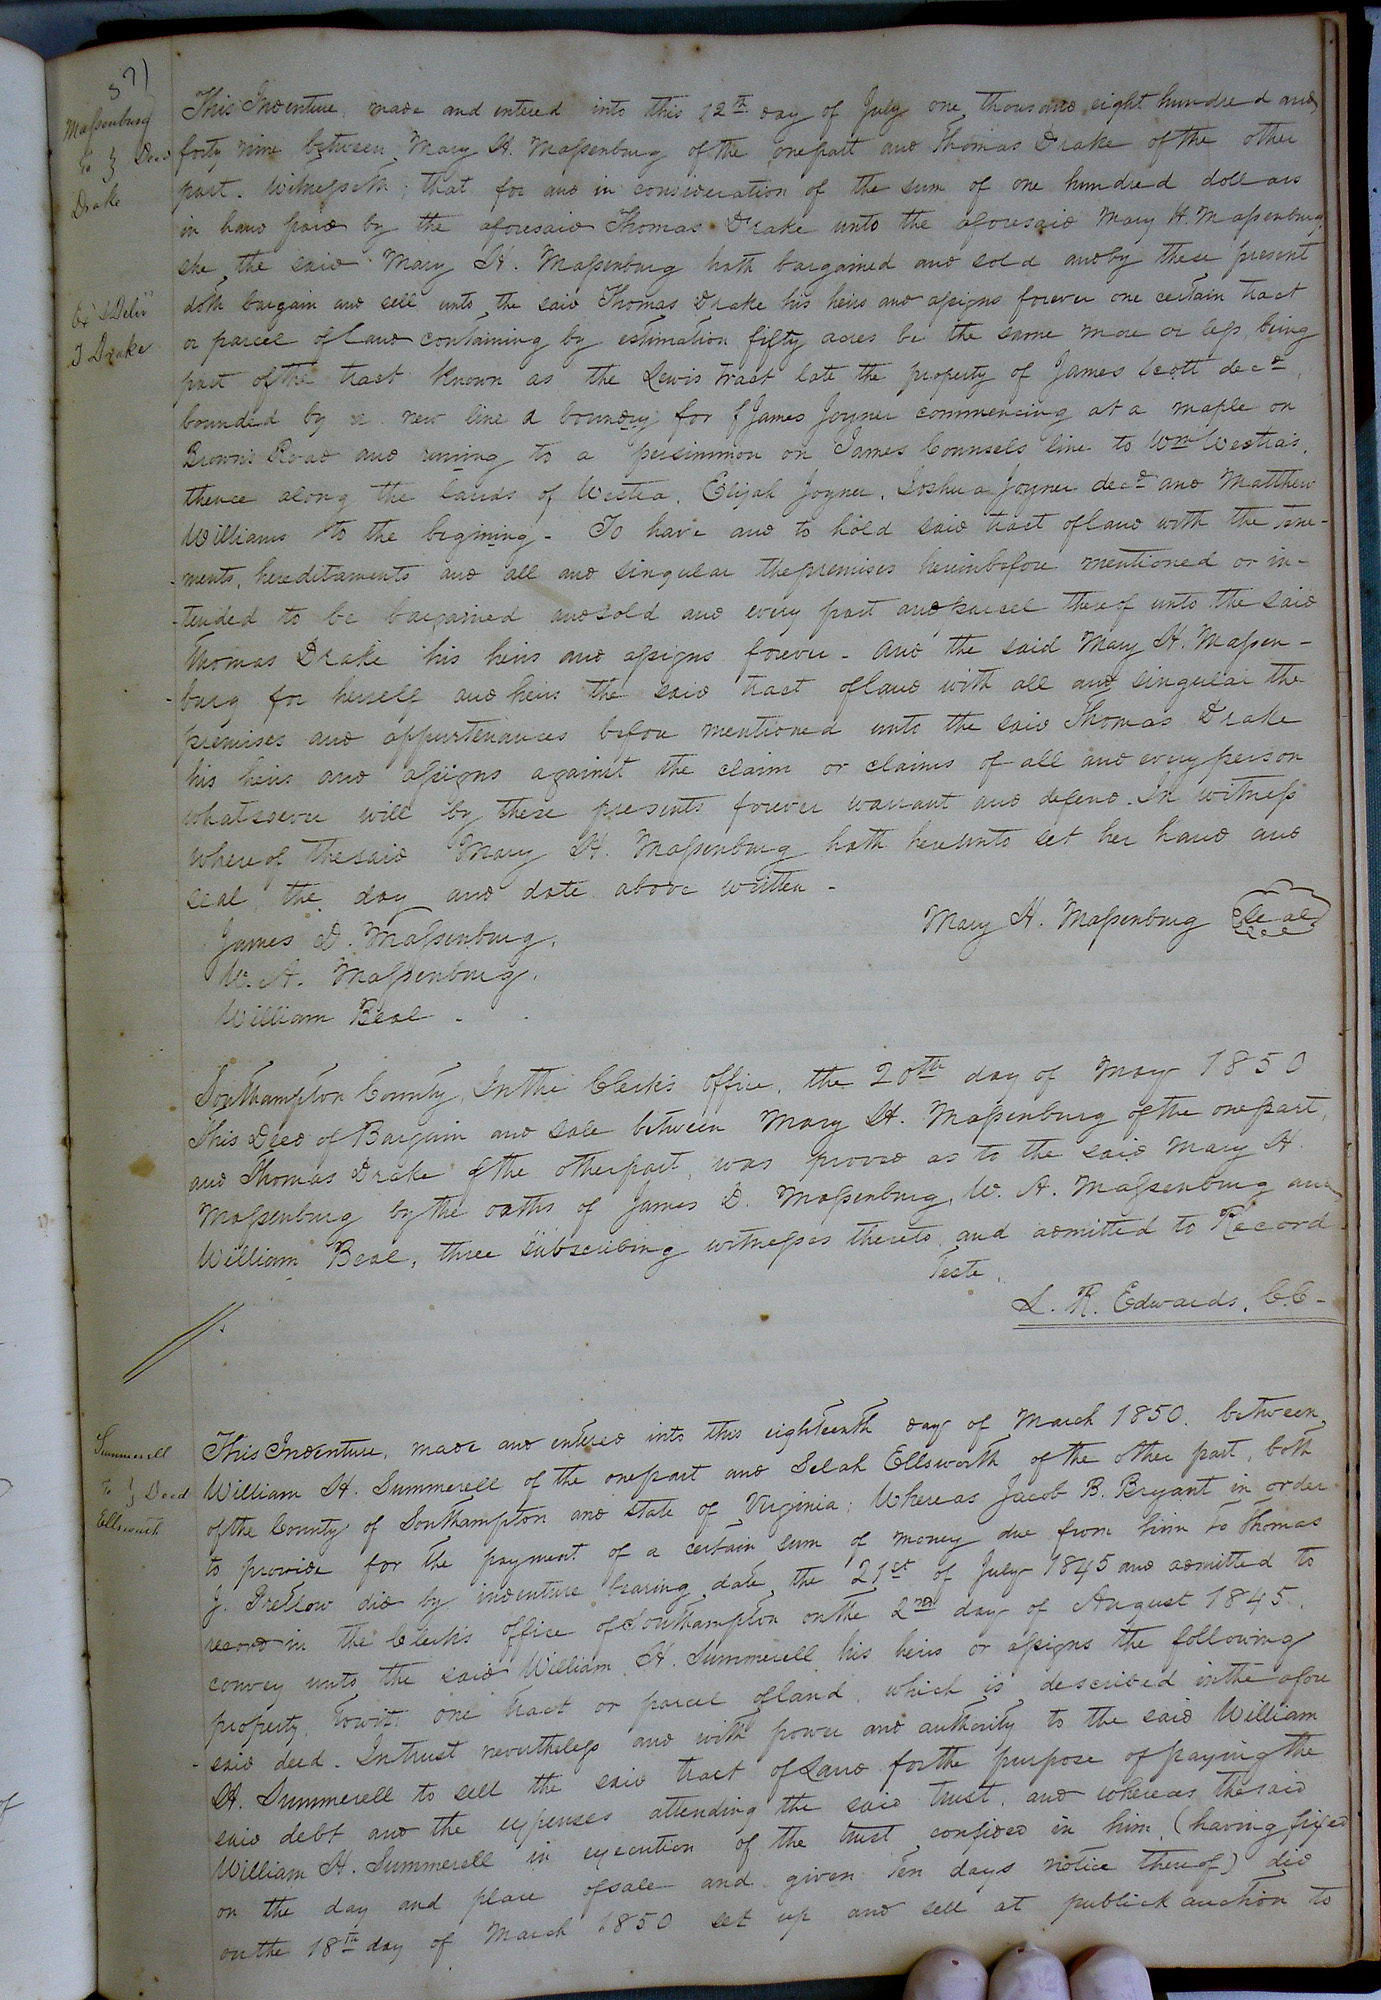 571
Massenburg
To } Deed
Drake
Ex'd & Deliv
T Drake
This Indenture, made and entered into this 12th day of July one thousand eight hundred and
forty nine between Mary H. Massenburg of the onepart and Thomas Drake of the other
part. Witnesseth, that for and in consideration of the sum of one hundred dollars
in hand paid by the aforesaid Thomas Drake unto the aforesaid Mary H. Massenburg,
she the said Mary H. Massenburg hath bargained and sold and by these present
doth bargain and sell unto the said Thomas Drake his heirs and assigns forever one certain tract
or parcel of land containing by estimation fifty acres be the same more or less, being
part of the tract known as the Lewis tract late the property of James Scott decd,
bounded by a new line a boundry for James Joyner commencing at a maple on
Brown's Road and runing to a persimmon on James Counsels line to Wm Westra's,
thence along the lands of Westra, Elijah Joyner, Joshua Joyner decd and Matthew
Williams to the begining - To have and to hold said tract of land with the tene-
-ments, hereditaments and all and singular the premises hereinbefore mentioned or in-
-tended to be bargained and sold and every part and parcel thereof unto the said
Thomas Drake his heirs and assigns forever - and the said Mary H. Massen-
-burg for herself and heirs the said tract of land with all and singular the
premises and appurtenances before mentioned unto the said Thomas Drake
his heirs and assigns against the claim or claims of all and every person
whatsoever will by these presents forever warrant and defend. In witness
whereof the said Mary H. Massenburg hath hereunto set her hand and
seal the day and date above written -
Mary H. Massenburg Seal
James D. Massenburg,
W. A. Massenburg,
William Beal -
Southampton County, In the Clerk's office, the 20th day of May 1850
This Deed of Bargain and sale between Mary H. Massenburg of the onepart,
and Thomas Drake of the other part, was proved as to the said Mary H.
Massenburg by the oaths of James D. Massenburg, W. A. Massenburg and
William Beal, three subscribing witnesses thereto, and admitted to Record
Teste,
L. R. Edwards, C.C -
Summerell
To } Deed
Ellsworth
This Indenture, made and entered into this eighteenth day of March 1850. between
William H. Summerell of the onepart and Selah Ellsworth of the other part, both
of the County of Southampton and state of Virginia; Whereas Jacob B. Bryant in order
to provide for the payment of a certain sum of money due from him to Thomas
J. Pretlow did by indenture bearing date the 21st of July 1845 and admitted to
record in the Clerk's office of Southampton on the 2nd day of August 1845.,
convey unto the said William H. Summerell his heirs or assigns the following
property, towit: one tract or parcel of land, which is described in the afore
-said deed. In trust nevertheless and with power and authority to the said William
H. Summerell to sell the said tract of Land for the purpose of paying the
said debt and the expenses attending the said trust, and whereas the said
William H. Summerell in execution of the trust confided in him, (having fixed
on the day and place of sale and given ten days notice thereof) did
on the 18th day of March 1850 set up and sell at publick auction to
of